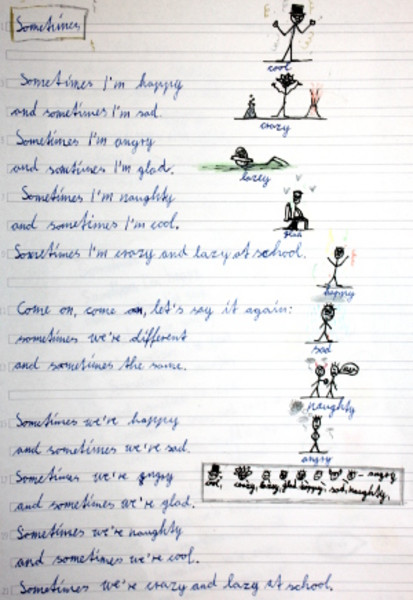 Sometimes
cool
Sometimes I'm happy
and sometimes I'm sad.
crazy
Sometimes I'm angry
and sometimes I'm glad.
lazy
Sometimes I'm naughty
and sometimes I'm cool.
glad
Sometimes I'm crazy and lazy at school.
happy
Come on, come on, let's say it again:
sometimes we're different
and sometimes the same.
sad
naughty
Sometimes we're happy
and sometimes we're sad.
angry
Sometimes we're angry
and sometimes we're glad.
- angry
cool, crazy, lazy, glad, happy, sad, naughty,
Sometimes we're naughty
and sometimes we're cool.
Sometimes we're crazy and lazy at school.